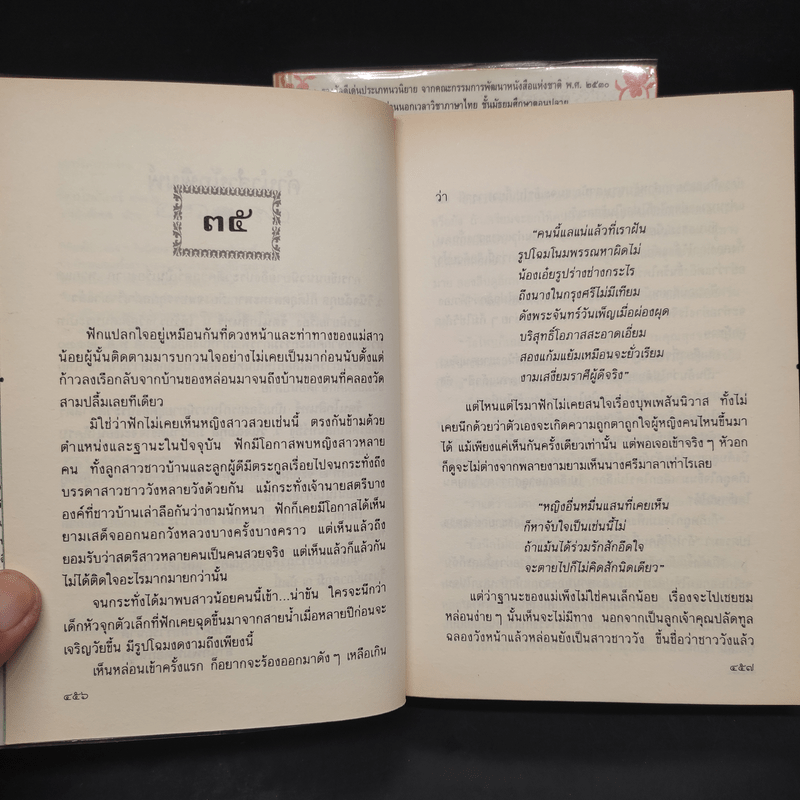 ดีเด่นประเภทนวนิยาย จากคณะกรรมการพัฒนาหนังสือแห่งชาติ พ.ศ. ๒๕๓๐
นอกเวลาวิชาภาษาไทย ชั้นมัธยมศึกษาตอนปลาย
๓๕
ฟักแปลกใจอยู่เหมือนกันที่ดวงหน้าและท่าทางของแม่สาว
น้อยผู้นั้นติดตามมารบกวนใจอย่างไม่เคยเป็นมาก่อนนับตั้งแต่
ก้าวลงเรือกลับจากบ้านของหล่อนมาจนถึงบ้านของตนที่คลองวัด
สามปลื้มเลยทีเดียว
มิใช่ว่าฟักไม่เคยเห็นหญิงสาวสวยเช่นนี้ ตรงกันข้ามด้วย
ตำแหน่งและฐานะในปัจจุบัน ฟักมีโอกาสพบหญิงสาวหลาย
คน ทั้งลูกสาวชาวบ้านและลูกผู้ดีมีตระกูลเรื่อยไปจนกระทั่งถึง
บรรดาสาวชาววังหลายวังด้วยกัน แม้กระทั่งเจ้านายสตรีบาง
องค์ที่ชาวบ้านเล่าลือกันว่างามนักหนา ฟักก็เคยมีโอกาสได้เห็น
ยามเสด็จออกนอกวังหลวงบางครั้งบางคราว แต่เห็นแล้วถึง
ยอมรับว่าสตรีสาวหลายคนเป็นคนสวยจริง แต่เห็นแล้วก็แล้วกัน
ไม่ได้ติดใจอะไรมากมายกว่านั้น
จนกระทั่งได้มาพบสาวน้อยคนนี้เข้า...น่าขัน ใครจะนึกว่า
เด็กหัวจุกตัวเล็กที่ฟักเคยฉุดขึ้นมาจากสายน้ำเมื่อหลายปีก่อนจะ
เจริญวัยขึ้น มีรูปโฉมงดงามถึงเพียงนี้
เห็นหล่อนเข้าครั้งแรก ก็อยากจะร้องออกมาดังๆ เหลือเกิน
๔๕๖
ว่า
“คนนี้แลแน่แล้วที่เราฝัน
รูปโฉมโนมพรรณหาผิดไม่
น้องเอ๋ยรูปร่างช่างกระไร
ถึงนางในกรุงศรีไม่มีเทียม
ดังพระจันทร์วันเพ็ญเมื่อผ่องผุด
บริสุทธิ์โอภาสสะอาดเอี่ยม
สองแก้มแย้มเหมือนจะยั่วเรียม
งามเสงี่ยมราศีผู้ดีจริง”
แต่ไหนแต่ไรมาฟักไม่เคยสนใจเรื่องบุพเพสันนิวาส ทั้งไม่
เคยนึกด้วยว่าตัวเองจะเกิดความถูกตาถูกใจผู้หญิงคนไหนขึ้นมา
ได้ แม้เพียงแค่เห็นกันครั้งเดียวเท่านั้น แต่พอเจอเข้าจริงๆ หัวอก
ก็ดูจะไม่ต่างจากพลายงามยามเห็นนางศรีมาลาเท่าไรเลย
“หญิงอื่นหมื่นแสนที่เคยเห็น
ก็หาจับใจเป็นเช่นนี้ไม่
ถ้าแม้นได้ร่วมรักสักอึดใจ
จะตายไปก็ไม่คิดสักนิดเดียว”
แต่ว่าฐานะของแม่เพ็งไม่ใช่คนเล็กน้อย เรื่องจะไปเชยชม
หล่อนง่ายๆ นั้นเห็นจะไม่มีทาง นอกจากเป็นลูกเจ้าคุณปลัดทูล
ฉลองวังหน้าแล้วหล่อนยังเป็นสาวชาววัง ขึ้นชื่อว่าชาววังแล้ว
๔๕๗